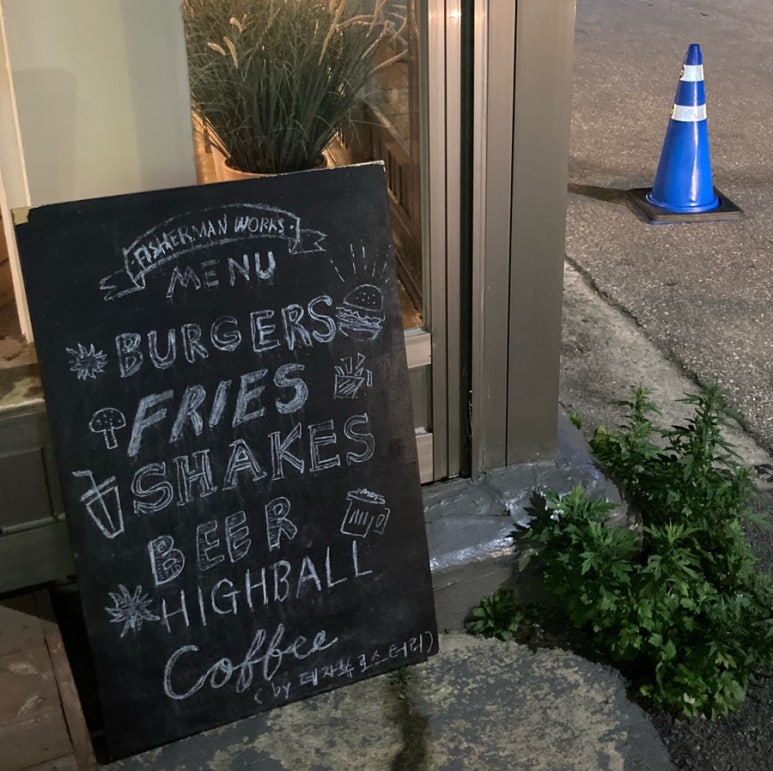 FISHERMAN WORKS
MENU
BURGERS
FRIES
SHAKES
BEER
HIGHBALL
Coffee
(by 데자뷰로스터리)